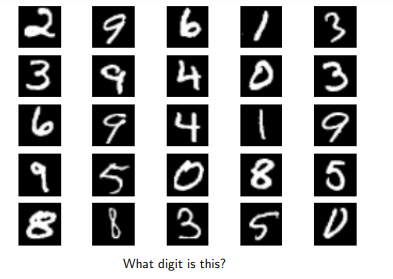 2 9 6 1 3
3 9 4 0 3
6 9 4 1 9
9 5 0 8 5
8 8 3 5 0
What digit is this?